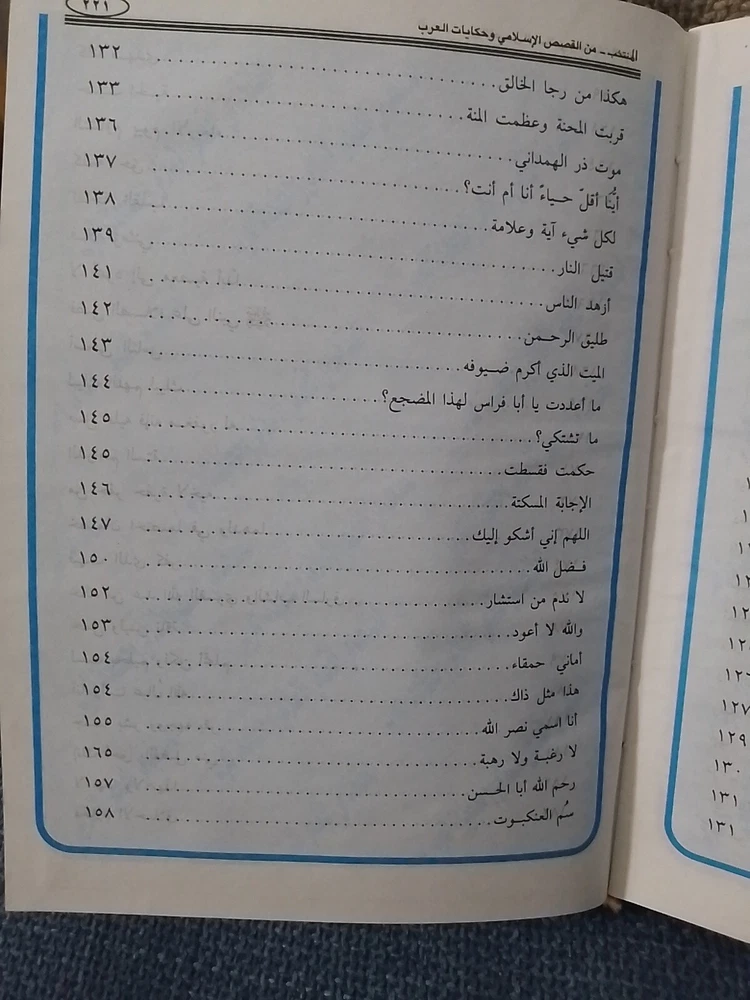 ٢٢١
المنتخب - من القصص الإسلامي وحكايات العرب
هكذا من رجا الخالق ١٣٢
قربت المحنة وعظمت المنة ١٣٣
موت ذر الهمداني ١٣٦
أينّا أقلّ حياءً أنا أم أنت؟ ١٣٧
لكل شيء آية وعلامة ١٣٨
قتيل النار ١٣٩
أزهد الناس ١٤١
طليق الرحمن ١٤٢
الميت الذي أكرم ضيوفه ١٤٣
ما أعددت يا أبا فراس لهذا المضجع؟ ١٤٤
ما تشتكي؟ ١٤٥
حكمت فقسطت ١٤٥
الإجابة المسكتة ١٤٦
اللهم إني أشكو إليك ١٤٧
فضل الله ١٥٠
لا ندم من استشار ١٥٢
والله لا أعود ١٥٣
أماني حمقاء ١٥٤
هذا مثل ذاك ١٥٤
أنا اسمي نصر الله ١٥٥
لا رغبة ولا رهبة ١٦٥
رحم الله أبا الحسن ١٥٧
سُم العنكبوت ١٥٨
١٢٧
١٢٩
١٣٠
١٣١
١٣١